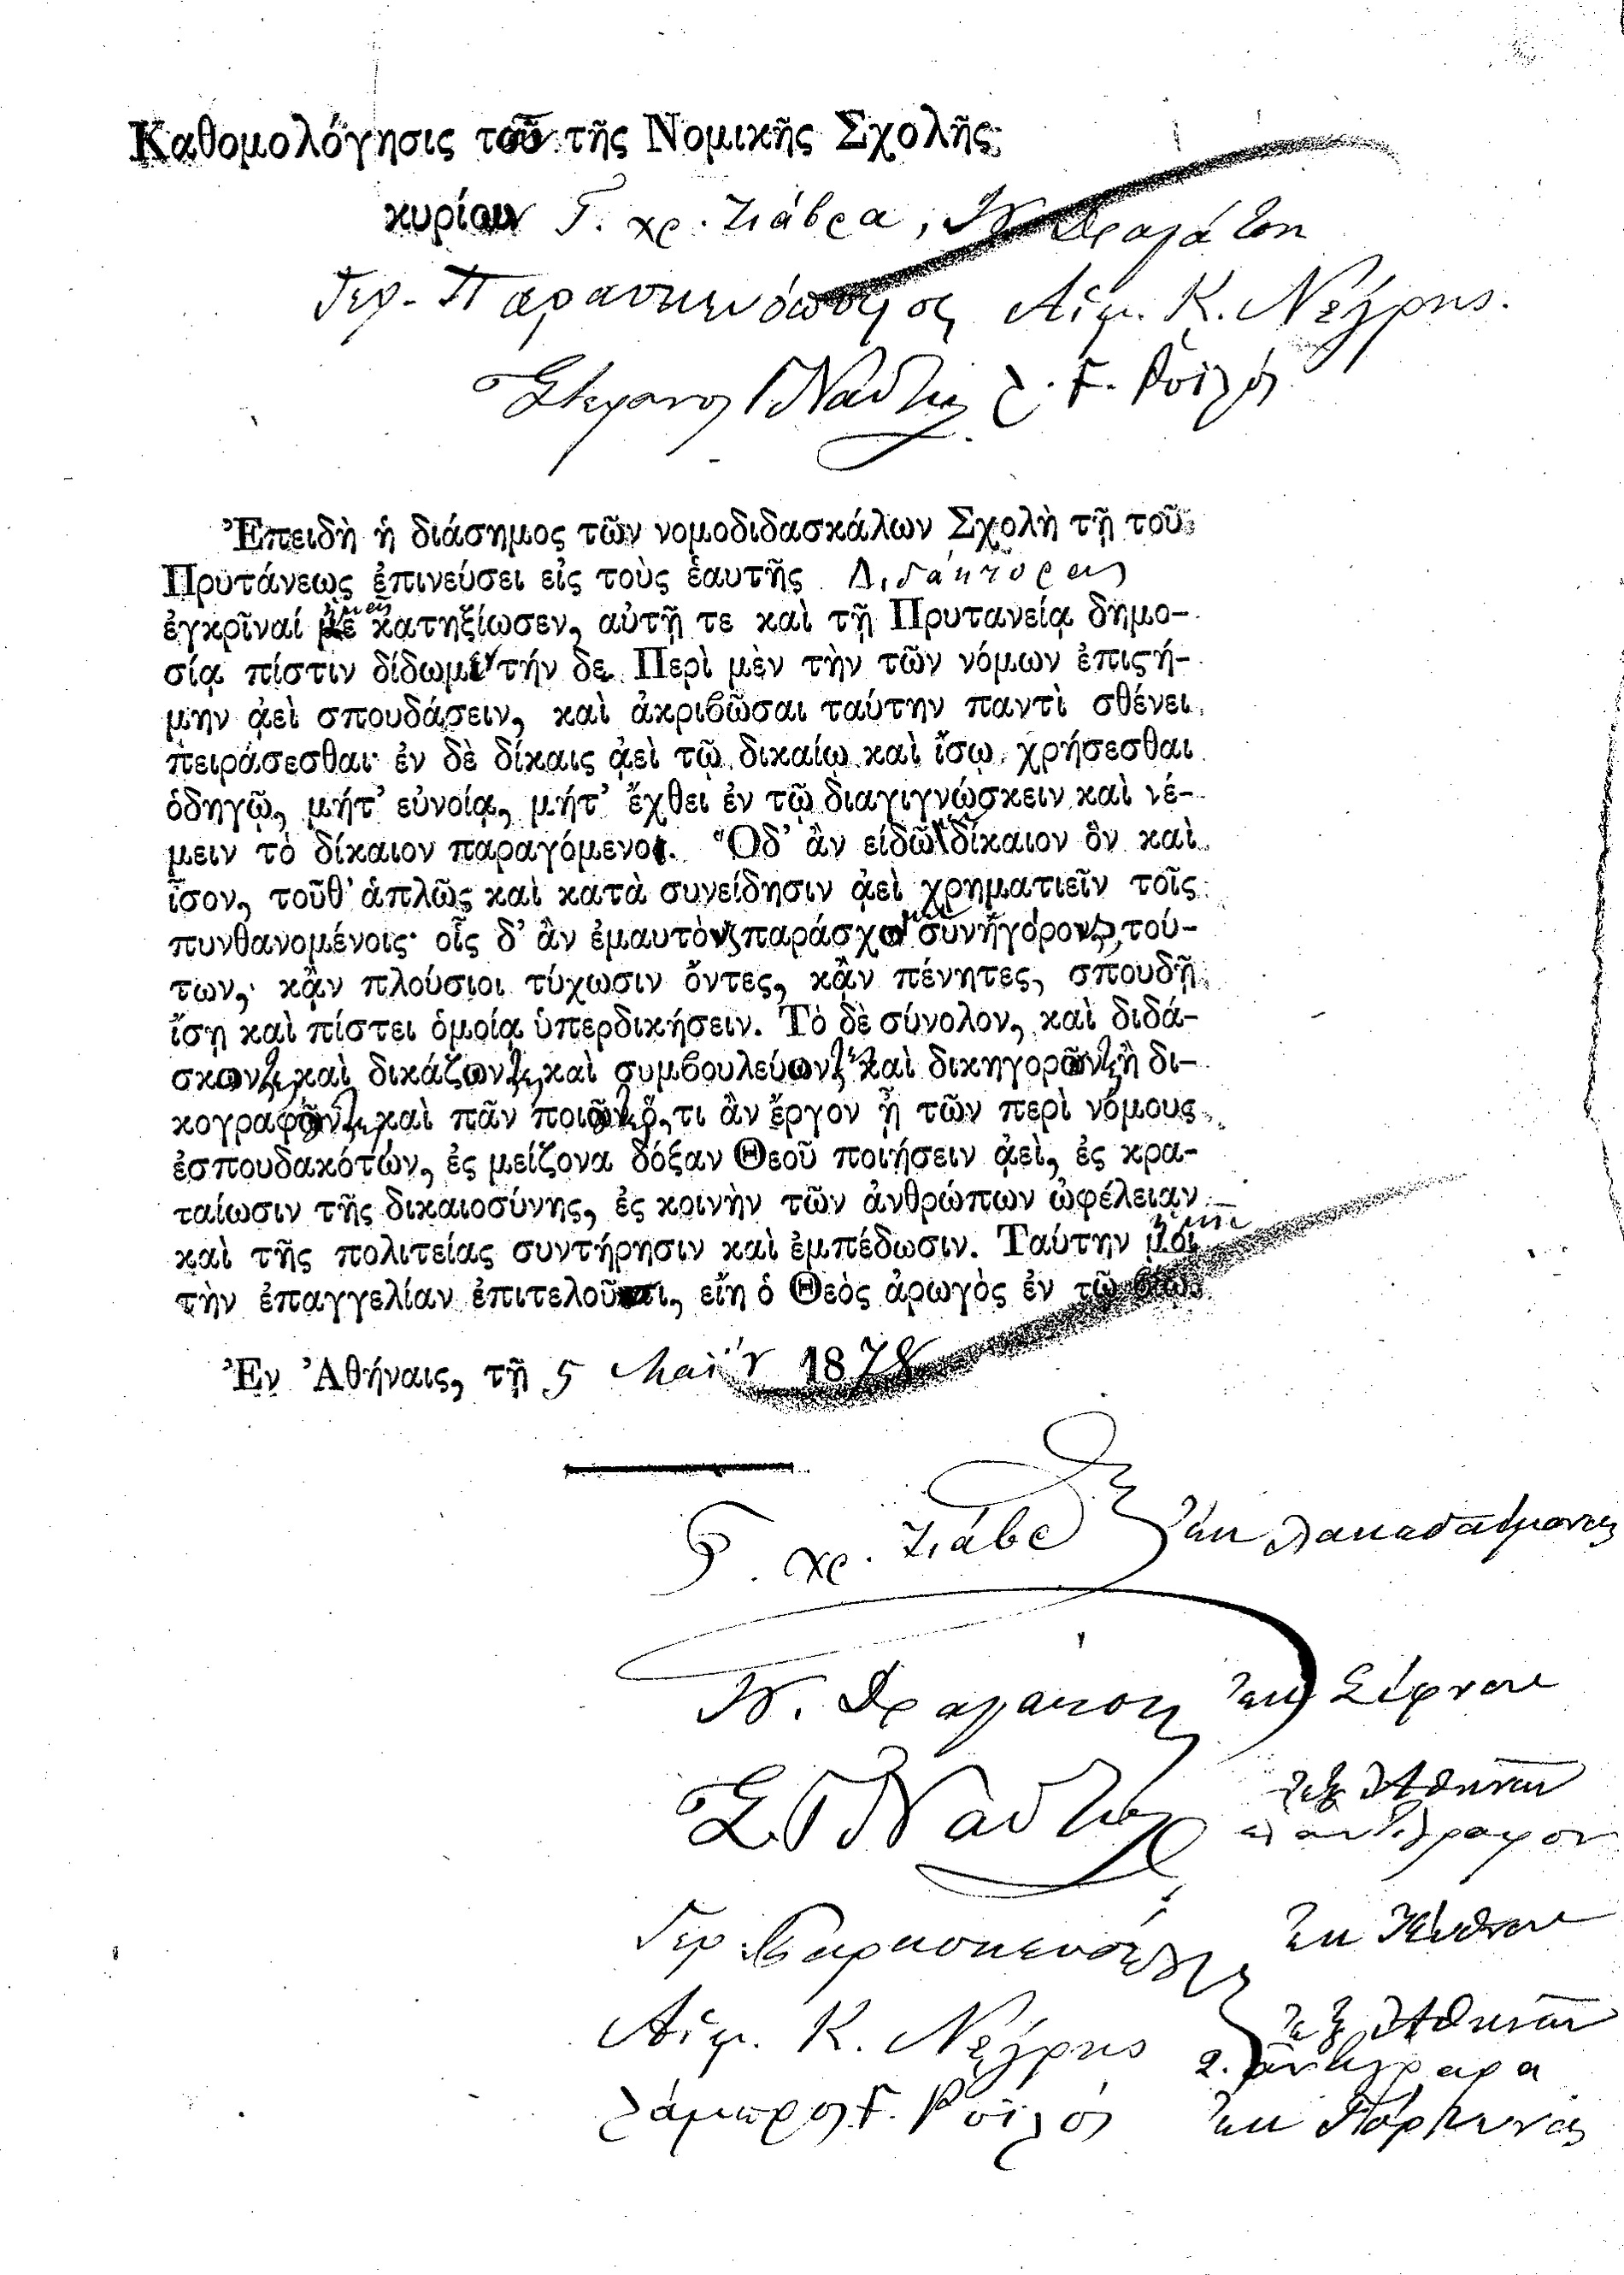 Καθομολόγησις τῶν τῆς Νομικῆς Σχολῆς
κυρίων Γ. Χρ. Ζιάβρα, Ν. Δραγάτση
Γερ. Παρασκευόπουλος Αἰμ. Κ. Νέγρης.
Στέφανος Γ Νάστος Λ. Γ. Ροϊλός
Ἐπειδὴ ἡ διάσημος τῶν νομοδιδασκάλων Σχολὴ τῇ τοῦ
Πρυτάνεως ἐπινεύσει εἰς τοὺς ἑαυτῆς Διδάκτορας
ἐγκρῖναί ἡμᾶς κατηξίωσεν, αὐτῇ τε καὶ τῇ Πρυτανείᾳ δημο-
σίᾳ πίστιν δίδωμεν τήν δε. Περὶ μὲν τὴν τῶν νόμων ἐπιστή-
μην ἀεὶ σπουδάσειν, καὶ ἀκριβῶσαι ταύτην παντὶ σθένει
πειράσεσθαι· ἐν δὲ δίκαις ἀεὶ τῷ δικαίῳ καὶ ἴσῳ χρήσεσθαι
ὁδηγῷ, μήτ’ εὐνοίᾳ, μήτ’ ἔχθει ἐν τῷ διαγιγνώσκειν καὶ νέ-
μειν τὸ δίκαιον παραγόμενοι. Ὃδ’ ἂν εἰδῶ δίκαιον ὂν καὶ
ἴσον, τοῦθ’ ἁπλῶς καὶ κατὰ συνείδησιν ἀεὶ χρηματιεῖν τοῖς
πυνθανομένοις· οἷς δ’ ἂν ἐμαυτὸνς παράσχωμεν συνήγορους, τού-
των, κἂν πλούσιοι τύχωσιν ὄντες, κἂν πένητες, σπουδῇ
ἴσῃ καὶ πίστει ὁμοίᾳ ὑπερδικήσειν. Τὸ δὲ σύνολον, καὶ διδά-
σκοντες καὶ δικάζοντες καὶ συμβουλεύοντες καὶ δικηγοροῦντες ἢ δι-
κογραφοῦντες καὶ πᾶν ποιοῦντες ὅ,τι ἂν ἔργον ᾖ τῶν περὶ νόμους
ἐσπουδακότων, ἐς μείζονα δόξαν Θεοῦ ποιήσειν ἀεὶ, ἐς κρα-
ταίωσιν τῆς δικαιοσύνης, ἐς κοινὴν τῶν ἀνθρώπων ὠφέλειαν
καὶ τῆς πολιτείας συντήρησιν καὶ ἐμπέδωσιν. Ταύτην ἡμῖν
τὴν ἐπαγγελίαν ἐπιτελοῦσι, εἴη ὁ Θεὸς ἀρωγὸς ἐν τῷ βίῳ.
Ἐν Ἀθήναις, τῇ 5 Μαΐου 1878
Γ. Χρ. Ζιάβρ ἐκ Λακεδαίμονος
Ν. Δραγάτσης ἐκ Σίφνου
Σ. Γ Νάστος ἐξ Ἀθηνῶν
ἀντίγραφον
Γερ. Παρασκευόπουλος ἐκ
Αἰμ. Κ. Νέγρης ἐξ Ἀθηνῶν
2. ἀντίγραφα
Λάμπρος Γ. Ροϊλός ἐκ